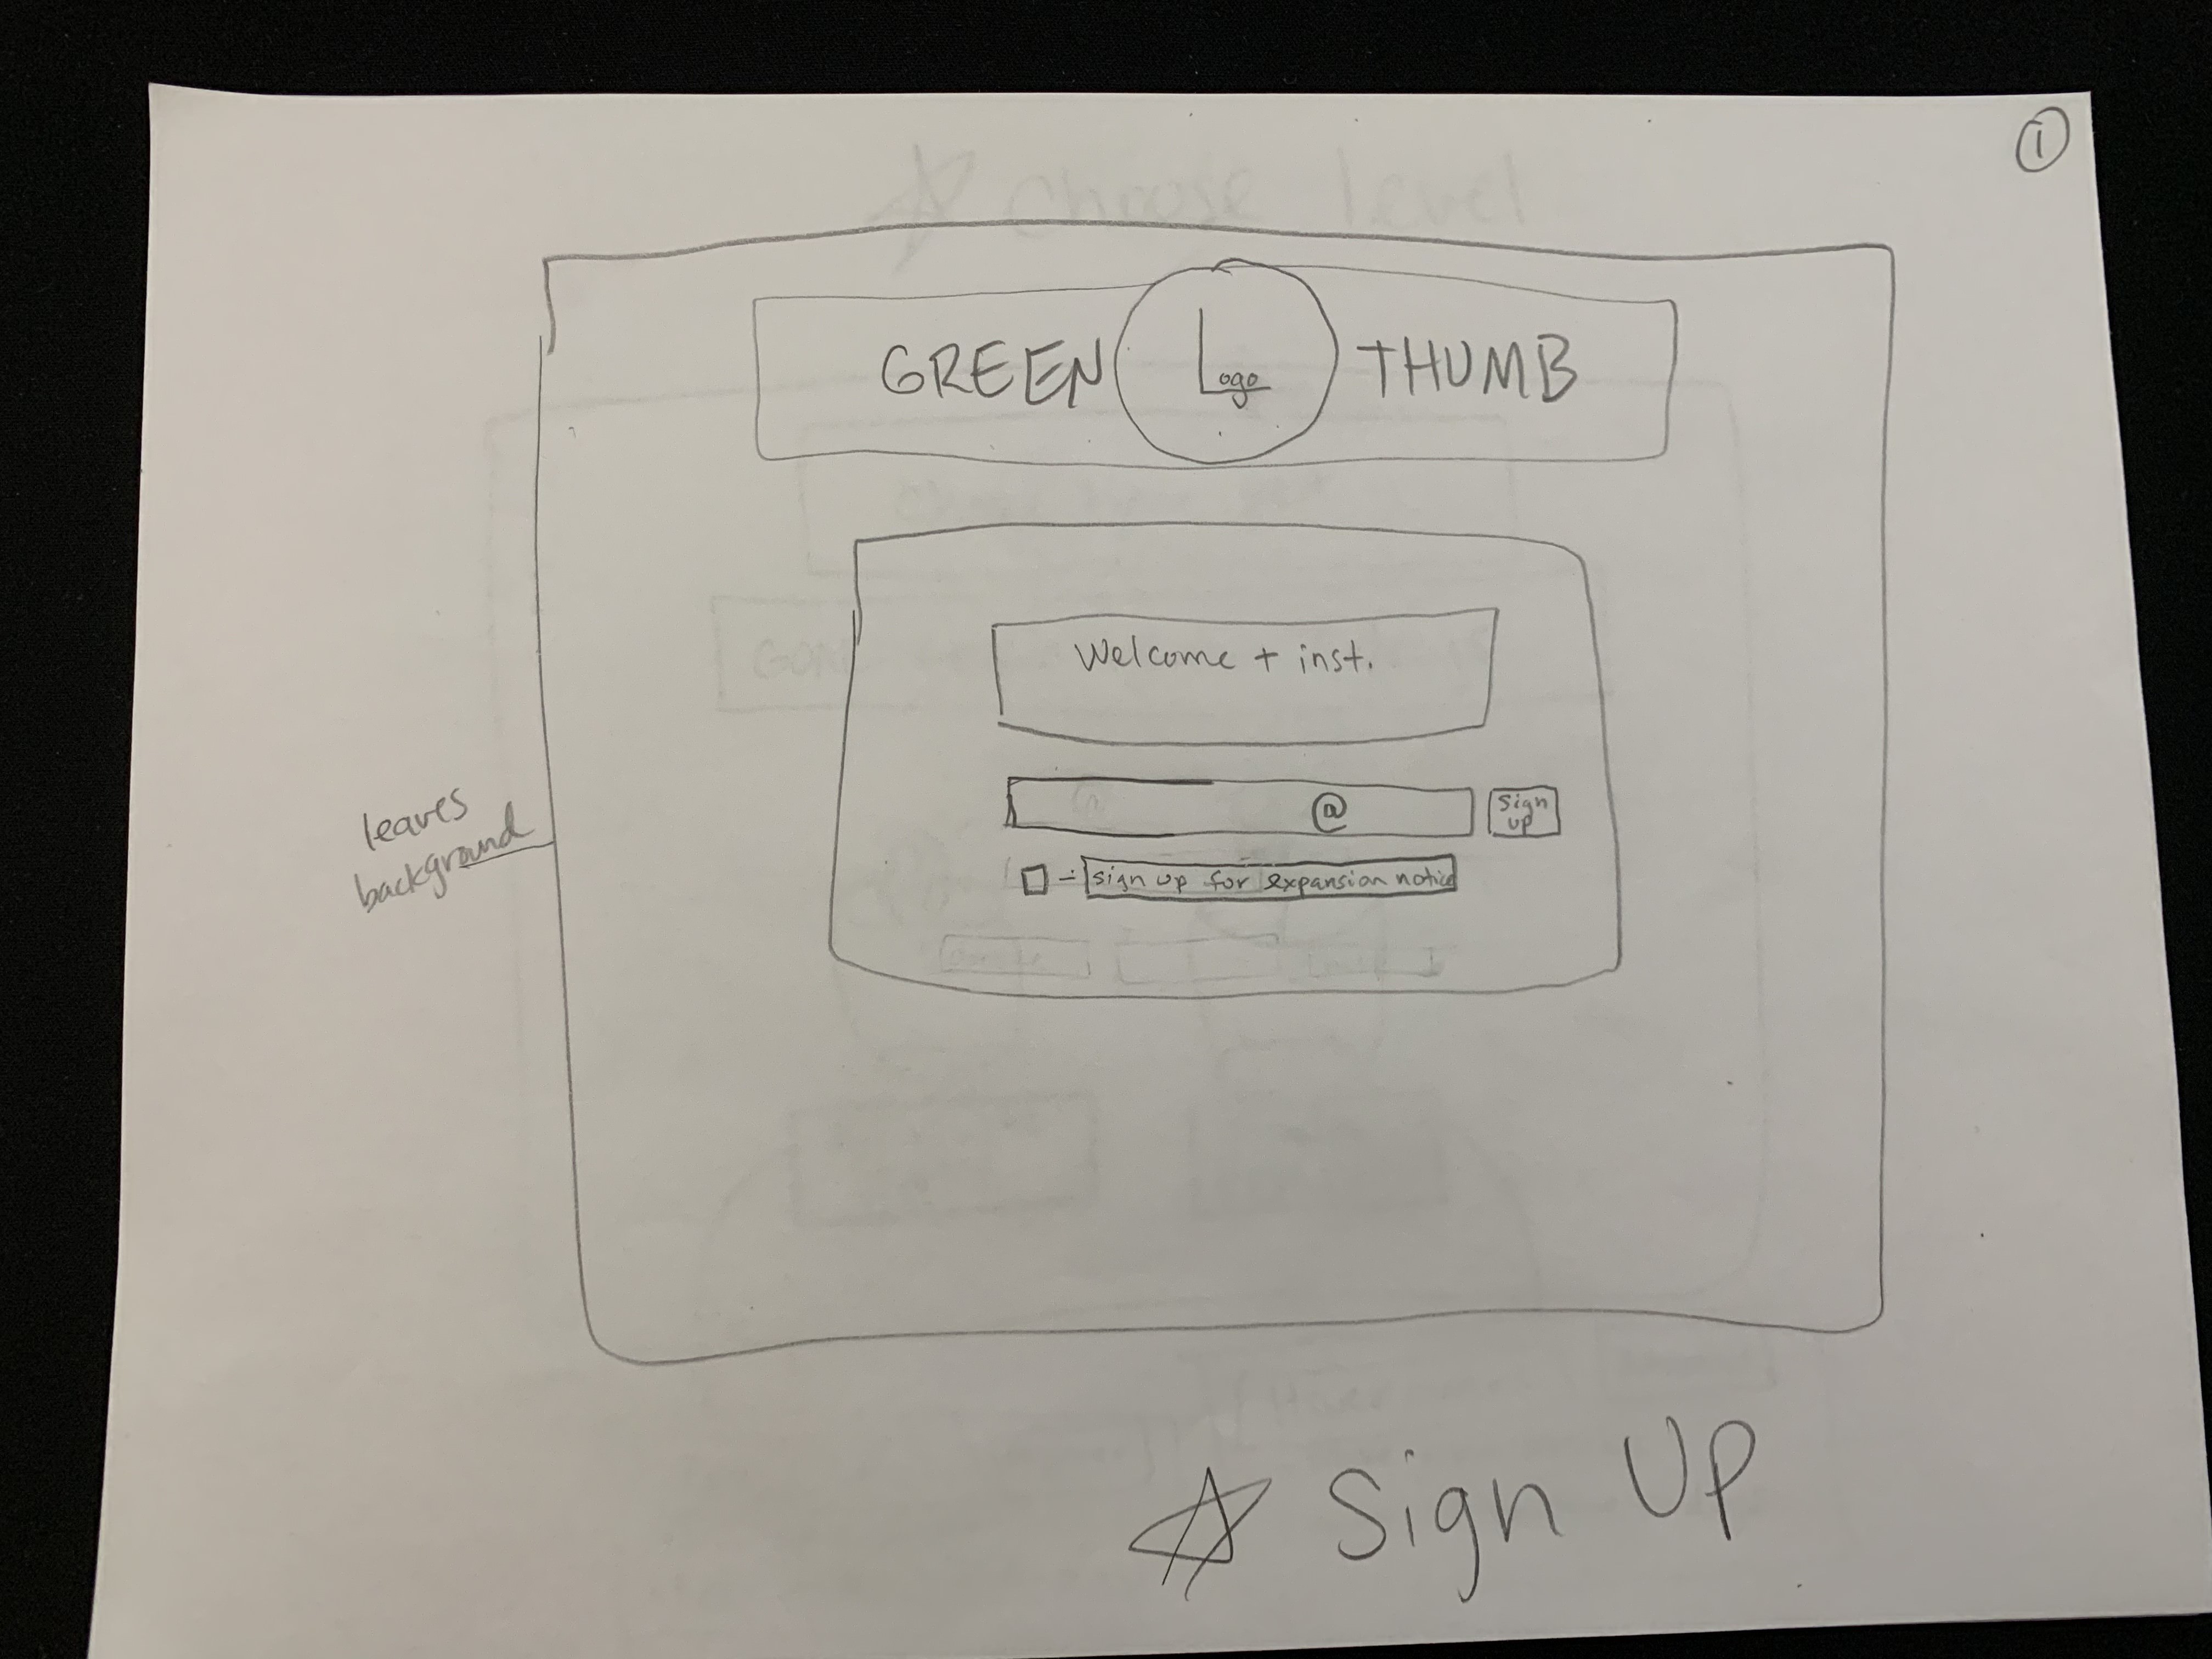 ①
☆ Choose level
GREEN Logo THUMB
Welcome + inst.
@ sign
up
□ - sign up for expansion notice
leaves
background
☆ Sign Up